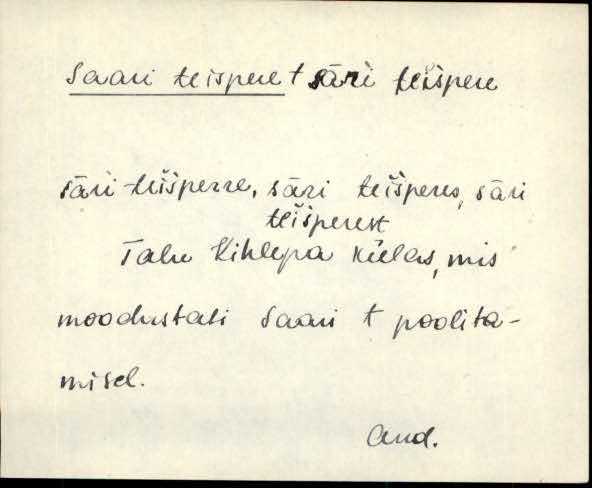 Saari teispere t sāri teišpere
sāri teišperre, sāri teišperes, sāri
teišperest
Talu Kihlepa külas, mis
moodustati Saari t poolita-
misel.
Aud.